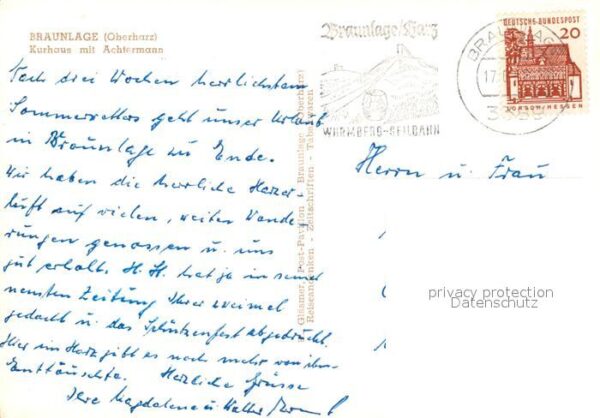 BRAUNLAGE (Oberharz)
Kurhaus mit Achtermann
Nach drei Wochen herrlichsten
Sommerwetters geht unser Urlaub
in Braunlage zu Ende.
Wir haben die herrliche Harzer-
luft auf vielen, weiten Wande
rungen genossen u. uns
gut erholt. H. H. hat ja in seiner
neusten Zeitung Ihrer zweimal
gedacht u. das Schützenfest abgedruckt.
Hier im Harz gibt es noch mehr von ihm
Enttäuschte. Herzliche Grüsse
Ihre Magdalena u. Walter
Glsamer, Post-Pavillon - Braunlage (Oberharz)
Reiseandenken - Zeitschriften - Tabakwaren
Braunlage/Harz
WURMBERG-SEILBAHN
BRAUNLAGE
17.
DEUTSCHE BUNDESPOST
20
LORSCH/HESSEN
Herrn u. Frau
privacy protection
Datenschutz